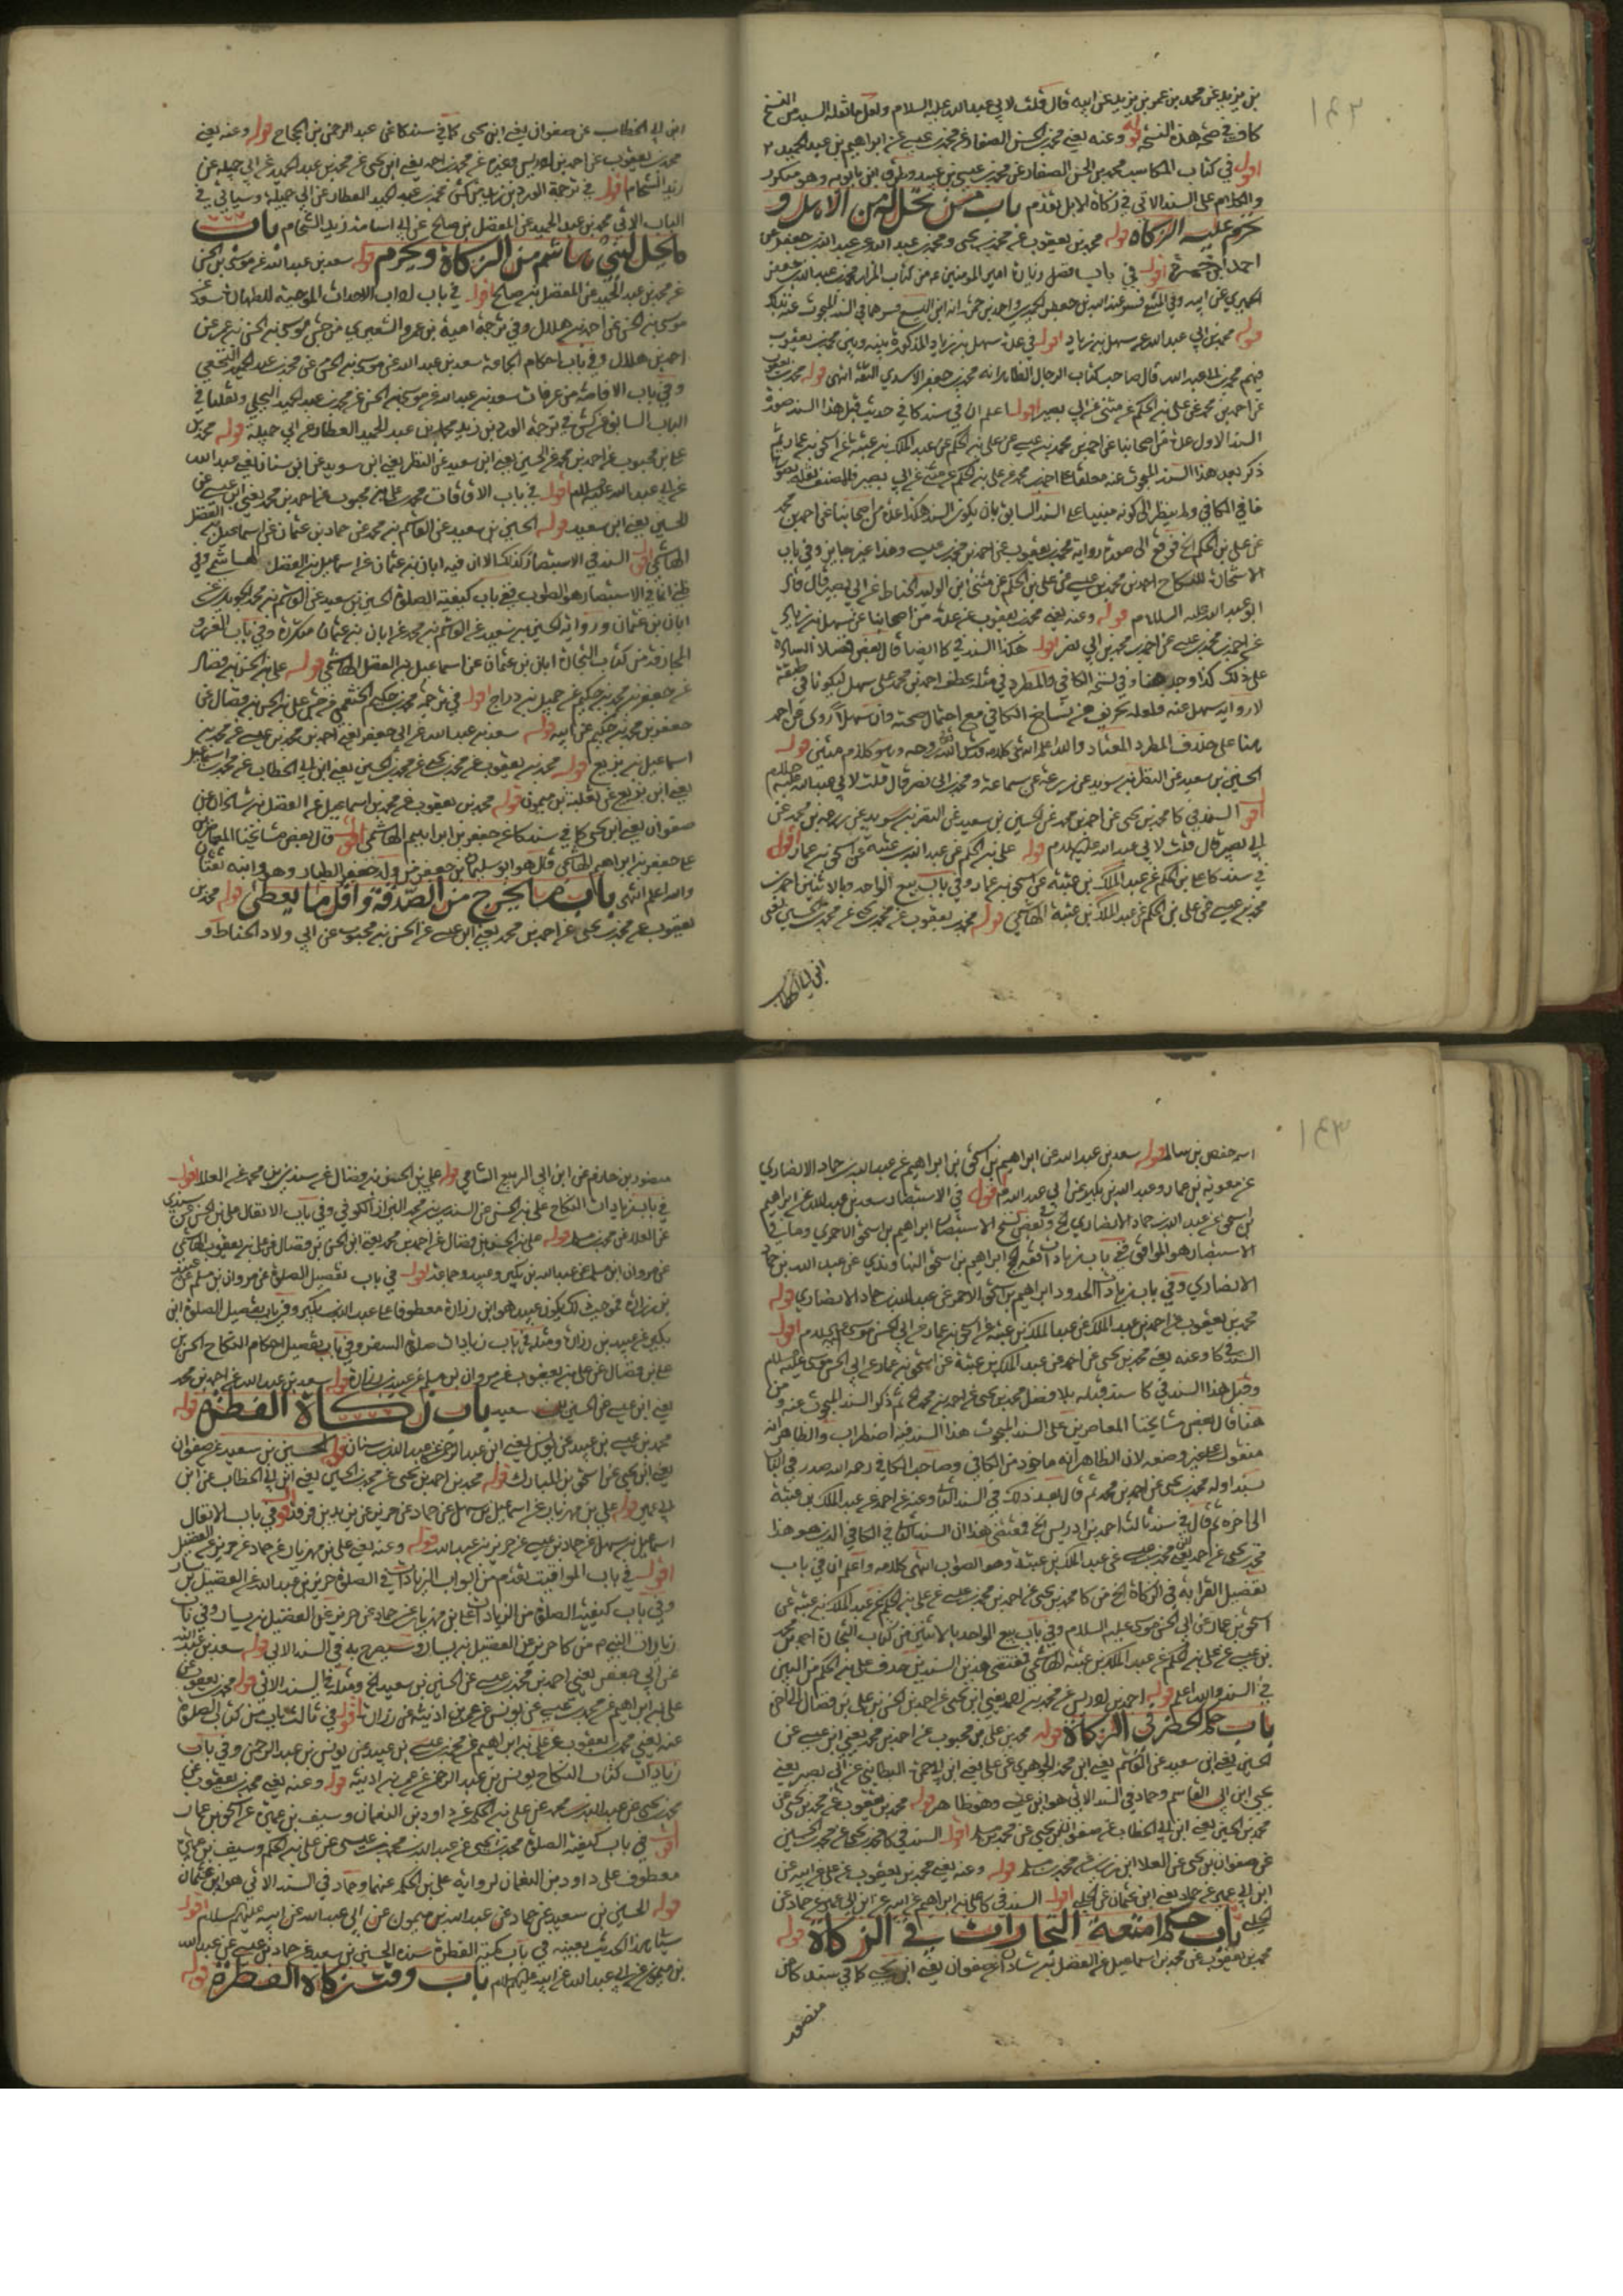 ١٤٢
بن يزيد عن محمد بن عمر بن يزيد عن ابيه قال قلت لابي عبد الله عليه السلام ولعل ما نقله السيد من النسخ
كاف في صحة هذه النسخة قوله وعنه يعني محمد بن الحسن الصفار عن محمد بن عيسى عن ابراهيم بن عبد الحميد
اقول في كتاب المكاسب محمد بن الحسن الصفار عن محمد بن عيسى بن عبيد وطرق ابن بابويه وهو
والكلام على السند الاتي في زكاة الابل تقدم باب من تحل له من الاهل و
تحرم عليه الزكاة قوله محمد بن يعقوب عن محمد بن يحيى ومحمد بن عبد الله عن عبد الله بن جعفر عن
احمد بن حمزة اقول في باب فضل زيارة امير المومنين ع من كتاب المزار محمد بن عبد الله بن جعفر
الحميري عن ابيه
قوله محمد بن ابي عبد الله عن سهل بن زياد اقول في عدة سهل بن زياد المذكورة بينه وبين محمد بن يعقوب
فيهم محمد بن ابي عبد الله قال صاحب كتاب الرجال الظاهر انه محمد بن جعفر الاسدي الثقة انتهى قوله محمد بن يعقوب
عن احمد بن محمد عن علي بن الحكم عن مثنى عن ابي بصير اقول اعلم ان في سند كا في حديث قبل هذا السند صورة
السند الاول عدة من اصحابنا عن احمد بن محمد بن عيسى عن علي بن الحكم عن عبد الملك بن عتبة عن اسحق بن عمار ثم
ذكر بعد هذا السند المبحوث عنه معلقا على احمد بن محمد عن علي بن الحكم عن مثنى عن ابي بصير فالمصنف نقله بصورة
ما في الكافي ولم ينظر الى كونه مبنيا على السند السابق بان يكون السند هكذا عدة من اصحابنا عن احمد بن محمد
عن علي بن الحكم الخ فوقع الى صورة رواية محمد بن يعقوب عن احمد بن محمد بن عيسى وهذا غير جايز وفي باب
الاستخارة للنكاح احمد بن محمد بن عيسى عن علي بن الحكم عن مثنى ابن الوليد الحناط عن ابي بصير قال قال
ابو عبد الله عليه السلام قوله وعنه يعني محمد بن يعقوب عن عدة من اصحابنا عن سهل بن زياد
عن احمد بن محمد بن عيسى عن احمد بن محمد بن ابي نصر اقول هكذا السند في كا ايضا قال بعض فضلا السادة
على ذلك كذا وجد هنا وفي نسخة الكافي والمطرد في مثله بعطف احمد بن محمد على سهل ليكونا في طبقة
لا رواية سهل عنه فلعله تحريف من نساخ الكافي مع احتمال صحته وان سهلا روى عن احمد
هنا على خلاف المطرد المعتاد والله اعلم انتهى كلامه قدس الله روحه وهو كلام متين قوله
الحسين بن سعيد عن النظر بن سويد عن زرعة عن سماعة ومحمد بن ابي نصر قال قلت لابي عبد الله عليه السلام
اقول السند في كا محمد بن يحيى عن احمد بن محمد عن الحسين بن سعيد عن النضر بن سويد عن زرعة بن محمد عن
ابي بصير قال قلت لابي عبد الله عليه السلام قوله علي بن الحكم عن عبد الله بن عتبة عن اسحق بن عمار اقول
في سند كا علي بن الحكم عن عبد الملك بن عتبة عن اسحق بن عمار وفي باب بيع الواحد بالاثنين احمد بن
محمد بن عيسى عن علي بن الحكم عن عبد الملك بن عتبة الهاشمي قوله محمد بن يعقوب عن محمد بن يحيى عن محمد بن الحسين يعني
ابن ابي الخطاب
ابن ابي الخطاب عن صفوان يعني ابن يحيى كا في سند كا عن عبد الرحمن بن الحجاج قوله وعنه يعني
محمد بن يعقوب عن احمد بن ادريس وغيره عن محمد بن احمد يعني ابن يحيى عن محمد بن عبد الحميد عن ابي جميلة عن
زيد الشحام اقول في ترجمة الورد بن زيد من كش محمد بن عبد الحميد العطار عن ابي جميلة وسياتي في
الباب الاتي محمد بن عبد الحميد عن المفضل بن صالح عن ابي اسامة زيد الشحام باب
ما يحل لبني هاشم من الزكاة ويحرم قوله سعد بن عبد الله عن موسى بن الحسن
عن محمد بن عبد الحميد عن المفضل بن صالح اقول في باب اداب الاحداث الموجبة للطهارة سعد عن
موسى بن الحسن عن احمد بن هلال وفي ترجمة امية بن عمرو الشعيري من جش موسى بن الحسن بن عامر عن
احمد بن هلال وفي باب احكام الجماعة سعد بن عبد الله عن موسى بن الحسن عن محمد بن عبد الحميد النخعي
وفي باب الافاضة من عرفات سعد بن عبد الله عن موسى بن الحسن عن محمد بن عبد الحميد البجلي ونقلنا في
الباب السابق عن كش في ترجمة الورد بن زيد محمد بن عبد الحميد العطار عن ابي جميلة قوله محمد بن
علي بن محبوب عن احمد بن محمد عن الحسين يعني ابن سعيد عن النظر يعني ابن سويد عن ابن سنان يعني عبد الله
عن ابي عبد الله عليه السلام اقول في باب الاوقات محمد بن علي بن محبوب عن احمد بن محمد يعني ابن عيسى عن
الحسين يعني ابن سعيد قوله الحسين بن سعيد عن القاسم بن محمد عن حماد بن عثمان عن اسماعيل بن الفضل
الهاشمي اقول السند في الاستبصار كذلك الا ان فيه ابان بن عثمان عن اسماعيل بن الفضل الهاشمي وفي
ظني ان ما في الاستبصار هو الصواب ففي باب كيفية الصلوة الحسين بن سعيد عن القاسم بن محمد الجوهري عن
ابان بن عثمان ورواية الحسين بن سعيد عن القاسم بن محمد عن ابان بن عثمان متكررة وفي باب الغرر و
المجازفة من كتاب التجارة ابان بن عثمان عن اسماعيل بن الفضل الهاشمي قوله علي بن الحسن بن فضال
عن جعفر بن محمد بن حكيم عن جميل بن دراج اقول في ترجمة محمد بن حكيم الخثعمي من جش علي بن الحسن بن فضال عن
جعفر بن محمد بن حكيم عن ابيه قوله سعد بن عبد الله عن ابي جعفر يعني احمد بن محمد بن عيسى عن محمد بن
اسماعيل بن بزيع قوله محمد بن يعقوب عن محمد بن يحيى عن محمد بن الحسين يعني ابن ابي الخطاب عن محمد بن اسماعيل
يعني ابن بزيع عن ثعلبة بن ميمون قوله محمد بن يعقوب عن محمد بن اسماعيل عن الفضل بن شاذان عن
صفوان يعني ابن يحيى كا في سند كا عن جعفر بن ابراهيم الهاشمي اقول قال بعض مشايخنا المعاصرين
على جعفر بن ابراهيم الهاشمي قال هو ابو سليمان جعفر من ولد جعفر الطيار وهو وابنه ثقتان
والله اعلم انتهى باب ما يخرج من الصدقة واقل ما يعطى قوله محمد بن
يعقوب عن محمد بن يحيى عن احمد بن محمد يعني ابن عيسى عن الحسن بن محبوب عن ابي ولاد الحناط و
١٤٣
اسه حفص بن سالم قوله سعد بن عبد الله عن ابراهيم بن اسحق بن ابراهيم عن عبد الله بن حماد الانصاري
عن معوية بن عمار وعبد الله بن بكير عن ابي عبد الله ع اقول في الاستبصار سعد بن عبد الله عن ابراهيم
بن اسحق عن عبد الله بن حماد الانصاري الخ وفي بعض نسخ الاستبصار ابراهيم بن اسحق الاحمري وما في
الاستبصار هو الموافق ففي باب زيادات فقه الحج ابراهيم بن اسحق النهاوندي عن عبد الله بن حماد
الانصاري وفي باب زيادات الحدود ابراهيم بن اسحق الاحمر عن عبد الله بن حماد الانصاري قوله
محمد بن يعقوب عن احمد بن عبد الملك عن عبد الملك بن عتبة عن اسحق بن عمار عن ابي الحسن موسى عليه السلام اقول
السند في كا وعنه يعني محمد بن يحيى عن احمد عن عبد الملك بن عتبة عن اسحق بن عمار عن ابي الحسن موسى عليه السلام
وقبل هذا السند في كا سند قبله بلا فصل محمد بن يحيى عن احمد بن محمد الخ ثم ذكر السند المبحوث عنه ومن
هنا قال بعض مشايخنا المعاصرين على السند المبحوث هذا السند فيه اضطراب والظاهر انه
منقول على غير وضعه لان الظاهر انه ماخوذ من الكافي وصاحب الكافي رحمه الله صدر في الباب
سندا وله محمد بن يحيى عن احمد بن محمد ثم قال بعد ذلك في السند الثاني وعنه عن احمد عن عبد الملك بن عتبة
الى اخره ثم قال في سند ثالث احمد بن ادريس الخ فمقتضى هذا ان السند الثاني في الكافي الذي هو هذا
محمد بن يحيى عن احمد يعني ابن محمد بن عيسى عن عبد الملك بن عتبة وهو الصواب انتهى كلامه واعلم ان في باب
تفضيل القرابة في الزكاة الخ من كا محمد بن يحيى عن احمد بن محمد بن عيسى عن علي بن الحكم عن عبد الملك بن عتبة عن
اسحق بن عمار عن ابي الحسن موسى عليه السلام وفي باب بيع الواحد بالاثنين من كتاب التجارة احمد بن محمد
بن عيسى عن علي بن الحكم عن عبد الملك بن عتبة الهاشمي فمقتضى هذين السندين حذف علي بن الحكم من البين
في السند والله اعلم قوله احمد بن ادريس عن محمد بن احمد يعني ابن يحيى عن احمد بن الحسن بن علي بن فضال الى اخره
باب حكم الحنطة في الزكاة قوله محمد بن علي بن محبوب عن احمد بن محمد يعني ابن عيسى عن
الحسين يعني ابن سعيد عن القاسم يعني ابن محمد الجوهري عن علي يعني ابن ابي حمزة البطائني عن ابي بصير يعني
يحيى ابن ابي القاسم وحماد في السند الاتي هو ابن عيسى وهو ظاهر قوله محمد بن يعقوب عن محمد بن يحيى عن
محمد بن الحسين يعني ابن ابي الخطاب عن صفوان بن يحيى عن محمد بن مسلم اقول السند في كا محمد بن يحيى عن محمد بن الحسين
عن صفوان بن يحيى عن العلا ابن رزين عن محمد بن مسلم قوله وعنه يعني محمد بن يعقوب عن علي عن ابيه عن
ابن ابي عمير عن حماد يعني ابن عثمان عن الحلبي اقول السند في كا علي بن ابراهيم عن ابيه عن ابن ابي عمير عن حماد عن
الحلبي باب حكم امتعة التجارات في الزكاة قوله
محمد بن يعقوب عن محمد بن اسماعيل عن الفضل بن شاذان عن صفوان يعني ابن يحيى كا في سند كا عن
منصور
منصور بن حازم عن ابن ابي الربيع الشامي قوله علي بن الحسن بن فضال عن سندي بن محمد عن العلا اقول
في باب زيادات النكاح علي بن الحسن عن السندي بن محمد البزاز الكوفي وفي باب الانفال علي بن الحسن عن سندي
عن العلا عن محمد بن مسلم قوله علي بن الحسن بن فضال عن احمد بن محمد يعني ابن الحسن بن فضال عن علي بن يعقوب الهاشمي
عن مروان ابن مسلم عن عبد الله بن بكير وعبيد وجماعة اقول في باب تفصيل الصلوة عن مروان بن مسلم عن عبيد
بن زرارة فمن حيث ذلك يكون عبيد هو ابن زرارة معطوفا على عبد الله بن بكير وفي باب تفصيل الصلوة ابن
بكير عن عبيد بن زرارة ومثله في باب زيادات صلوة السفر وفي باب تفصيل احكام النكاح الحسن بن
علي بن فضال عن علي بن يعقوب عن مروان بن مسلم عن عبيد بن زرارة قوله سعد بن عبد الله عن احمد بن محمد
يعني ابن عيسى عن الحسين بن سعيد باب زكاة الفطرة قوله
محمد بن عيسى بن عبيد عن يونس يعني ابن عبد الرحمن عن عبد الله بن سنان قوله الحسين بن سعيد عن صفوان
يعني ابن يحيى عن اسحق بن المبارك قوله محمد بن احمد بن يحيى عن محمد بن الحسين يعني ابن ابي الخطاب عن ابن
ابي عمير قوله علي بن مهزيار عن اسماعيل بن سهل عن حماد عن حريز عن يزيد بن فرقد اقول في باب الانفال
اسماعيل بن سهل عن حماد بن عيسى عن حريز بن عبد الله قوله وعنه يعني علي بن مهزيار عن حماد عن حريز عن الفضيل
اقول في باب المواقيت تقدم من ابواب الزيادات في الصلوة حريز بن عبد الله عن الفضيل بن يسار
وفي باب كيفية الصلوة من الزيادات علي بن مهزيار عن حماد عن حريز عن الفضيل بن يسار وفي باب
زيارات النبي ص من كا حريز عن الفضيل بن يسار وسيصرح به في السند الاتي قوله سعد بن عبد الله
عن ابي جعفر يعني احمد بن محمد بن عيسى عن الحسين بن سعيد الخ ومثله في السند الاتي قوله محمد بن يعقوب عن
علي بن ابراهيم عن محمد بن عيسى عن يونس عن عمر بن اذينة عن زرارة اقول في ثالث باب من كتاب الصلوة
عنه يعني محمد بن يعقوب عن علي بن ابراهيم عن محمد بن عيسى بن عبيد عن يونس بن عبد الرحمن وفي باب
زيادات كتاب النكاح يونس بن عبد الرحمن عن عمر بن اذينة قوله وعنه يعني محمد بن يعقوب عن
محمد بن يحيى عن عبد الله بن محمد عن علي بن الحكم عن داود بن النعمان وسيف بن عميرة عن اسحق بن عمار
اقول في باب كيفية الصلوة محمد بن يحيى عن عبد الله بن محمد بن عيسى عن علي بن الحكم وسيف بن عميرة
معطوف على داود بن النعمان لرواية علي بن الحكم عنهما وحماد في السند الاتي هو ابن عثمان
قوله الحسين بن سعيد عن حماد عن عبد الله بن ميمون عن ابي عبد الله عن ابيه عليهم السلام اقول
سياتي هذا الحديث بعينه في باب كمية الفطرة سنده الحسين بن سعيد عن حماد بن عيسى عن عبد الله
بن ميمون عن ابي عبد الله عن ابيه عليهم السلام باب وقت زكاة الفطرة قوله